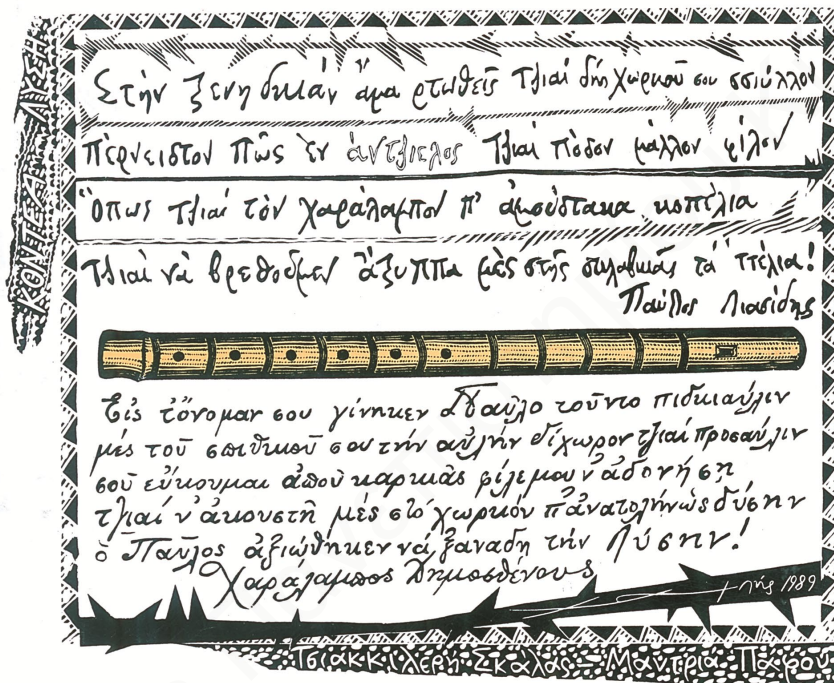 ΚΟΝΤΕΑ ΛΥΣΗ
Στὴν ξένη δικιὰν ἅμα ρτωθεῖς τζιαὶ δῆς χωρκοῦ σου σσιύλλον
πέρνεις τον πῶς ἔν ἄντζιελος τζιαὶ πόδον μᾶλλον φίλον
Ὅπως τζιαὶ τὸν Χαράλαμπον π' ἀμούστακα κοπέλια
τζιαὶ νὰ βρεθοῦμεν ἄξυππα μὲς στῆς σκλαβκιᾶς τὰ ττέλια!
Παῦλος Λιασίδης
Εἰς τὄνομαν σου γίνηκεν Παῦλο τοῦντο πιδκιαύλιν
μές τοῦ σπιθκιοῦ σου τὴν αὐλὴν δίχωρον τζιαὶ προσαύλιν
σοῦ εὔκουμαι ἀποὺ καρκιᾶς φίλε μου ν' ἀδονήση
τζιαὶ ν' ἀκουστῆ μὲς στὸ χωρκὸν π' ἀνατολὴν ὡς δύσην
ὁ Παῦλος ἀξιώθηκεν νὰ ξαναδῆ τὴν Λύσην!
Χαράλαμπος Δημοσθένους
1989
Τσιακκιλερή Σκάλας - Μαντριά Πάφου